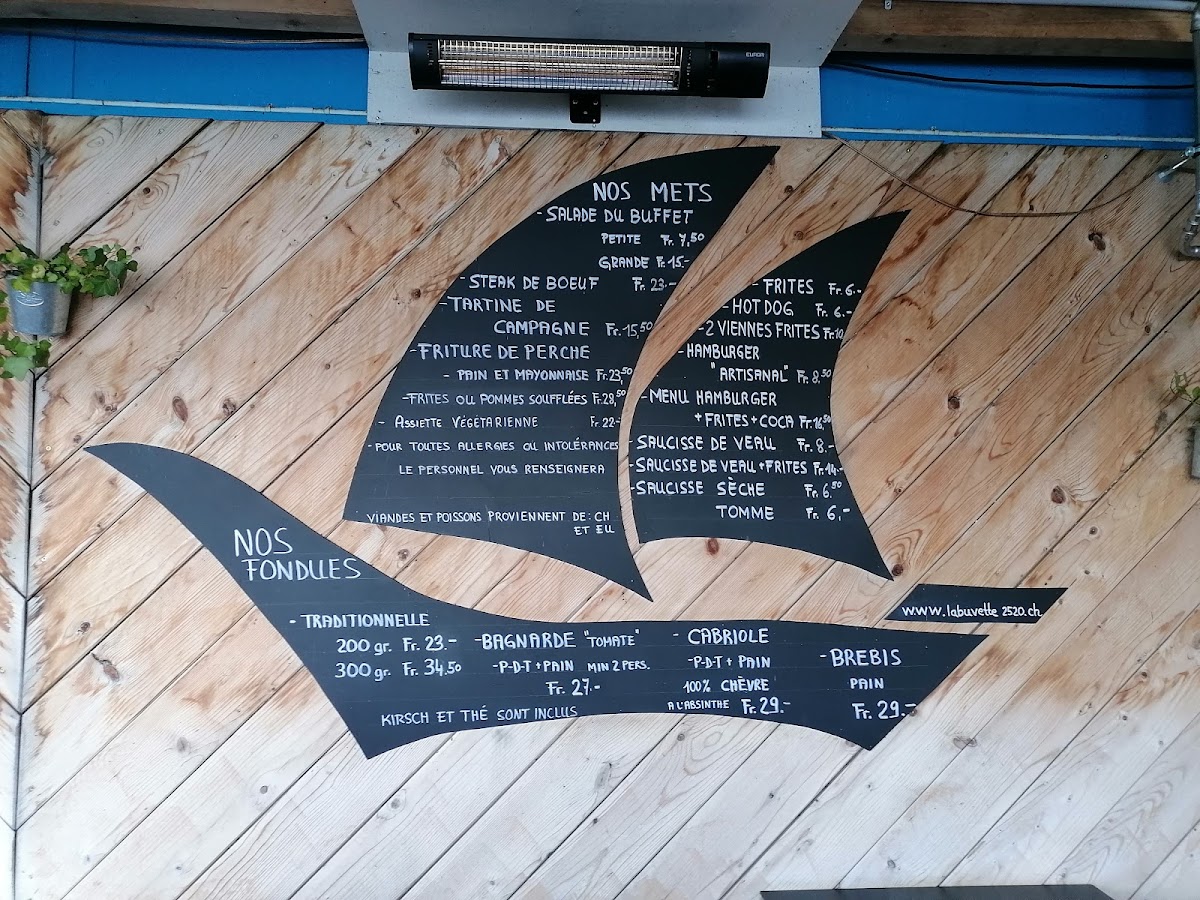 NOS METS
-SALADE DU BUFFET
PETITE Fr. 7,50
GRANDE Fr. 15.-
-STEAK DE BOEUF Fr. 23.-
-TARTINE DE
CAMPAGNE Fr. 15,50
-FRITURE DE PERCHE
- PAIN ET MAYONNAISE Fr. 23,50
-FRITES OU POMMES SOUFFLÉES Fr. 28,50
- ASSIETTE VÉGÉTARIENNE Fr. 22-
-POUR TOUTES ALLERGIES OU INTOLÉRANCES
LE PERSONNEL VOUS RENSEIGNERA
VIANDES ET POISSONS PROVIENNENT DE: CH
ET EU
- FRITES Fr. 6.-
-HOT DOG Fr. 6.-
-2 VIENNES FRITES Fr. 10
-HAMBURGER
"ARTISANAL" Fr. 8.50
-MENU HAMBURGER
+ FRITES + COCA Fr. 16,50
-SAUCISSE DE VEAU Fr. 8.-
-SAUCISSE DE VEAU + FRITES Fr. 14.-
-SAUCISSE SÈCHE Fr. 6.50
TOMME Fr. 6,-
www.labuvette2520.ch
NOS
FONDUES
- TRADITIONNELLE
200 gr. Fr. 23.-
300 gr. Fr. 34.50
-BAGNARDE "TOMATE"
-P-D-T + PAIN MIN 2 PERS.
Fr. 27.-
KIRSCH ET THÉ SONT INCLUS
- CABRIOLE
-P-D-T + PAIN
100% CHÈVRE
A L'ABSINTHE Fr. 29.-
-BREBIS
PAIN
Fr. 29.-